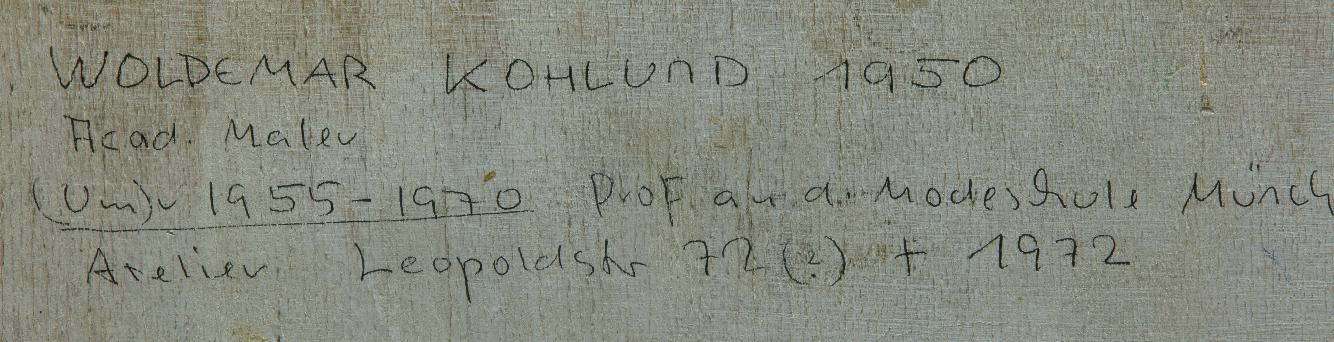 WOLDEMAR KOHLUND 1950
Acad. Maler
(Um) 1955-1970 Prof an d. Modeschule Münch
Atelier Leopoldstr 72 (?) + 1972